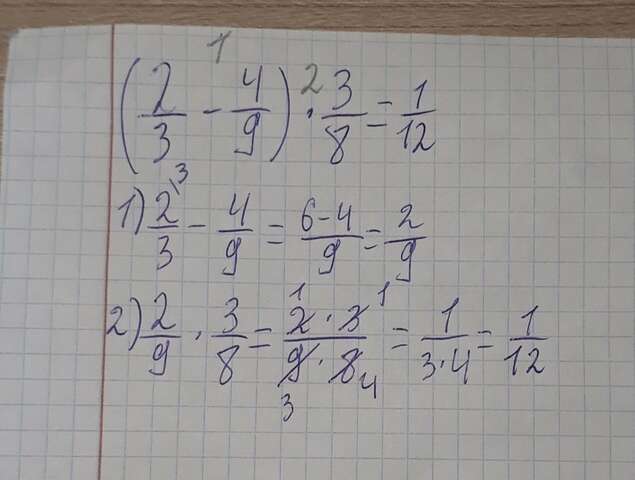 (2/3 - 4/9) · 3/8 = 1/12
1) 2\3/3 - 4/9 = 6-4/9 = 2/9
2) 2/9 · 3/8 = 2·3/9·8 = 1/3·4 = 1/12